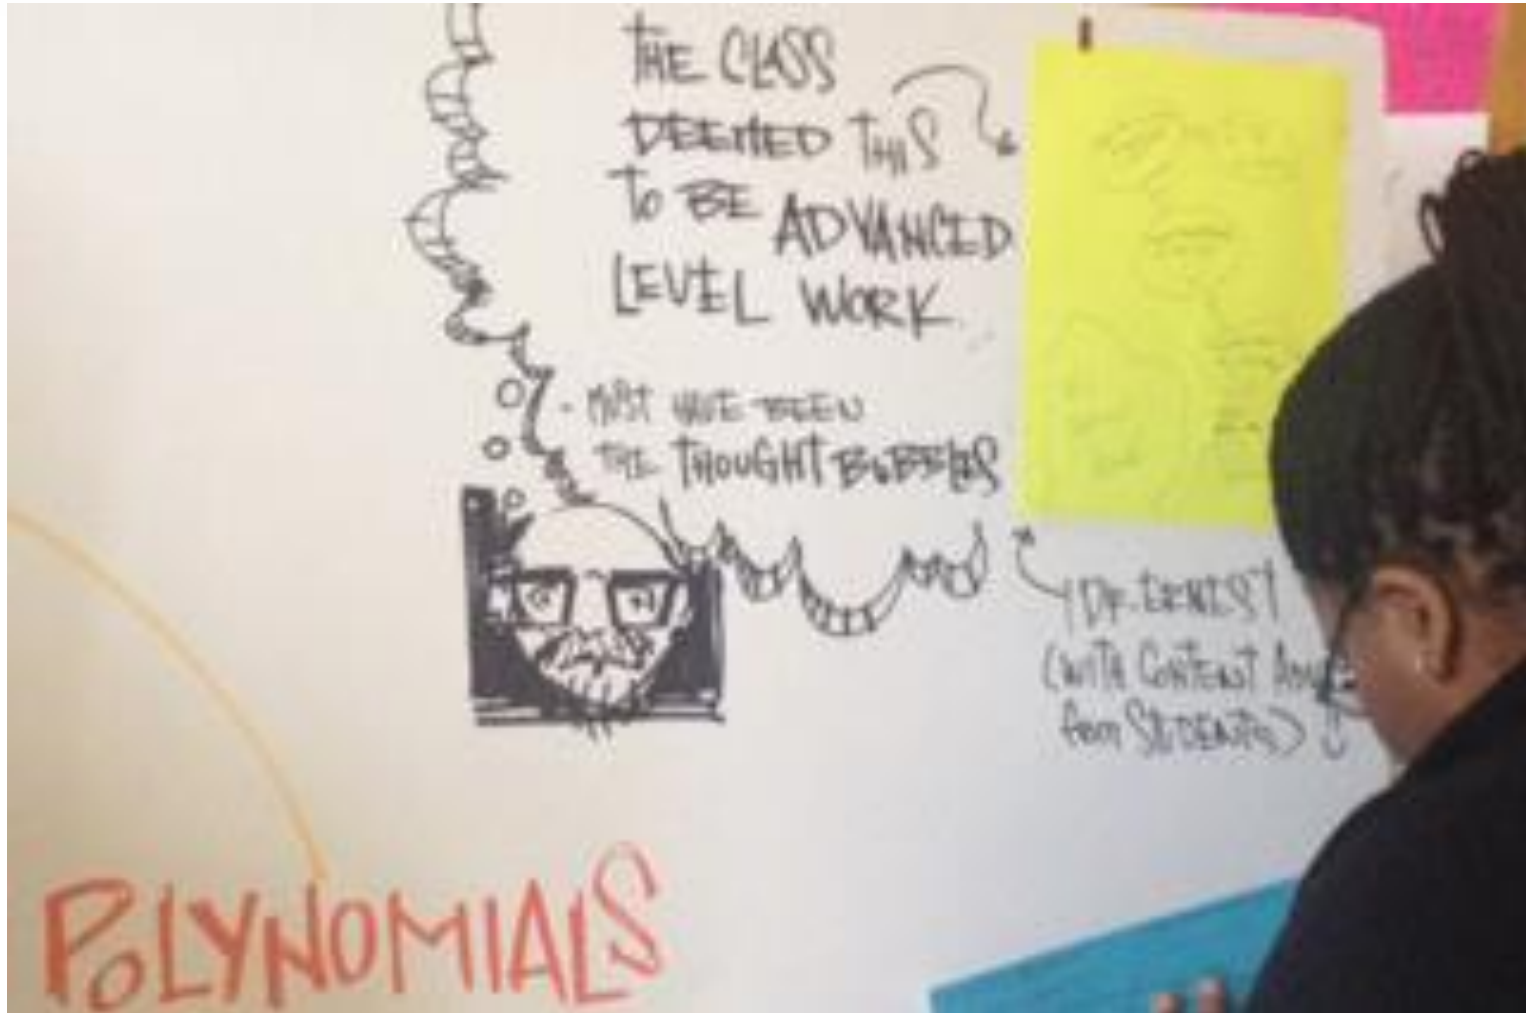 THE CLASS
DEEMED THIS
TO BE ADVANCED
LEVEL WORK
- MUST HAVE BEEN
THE THOUGHT BUBBLES
(WITH CONTENT
from STUDENTS)
POLYNOMIALS